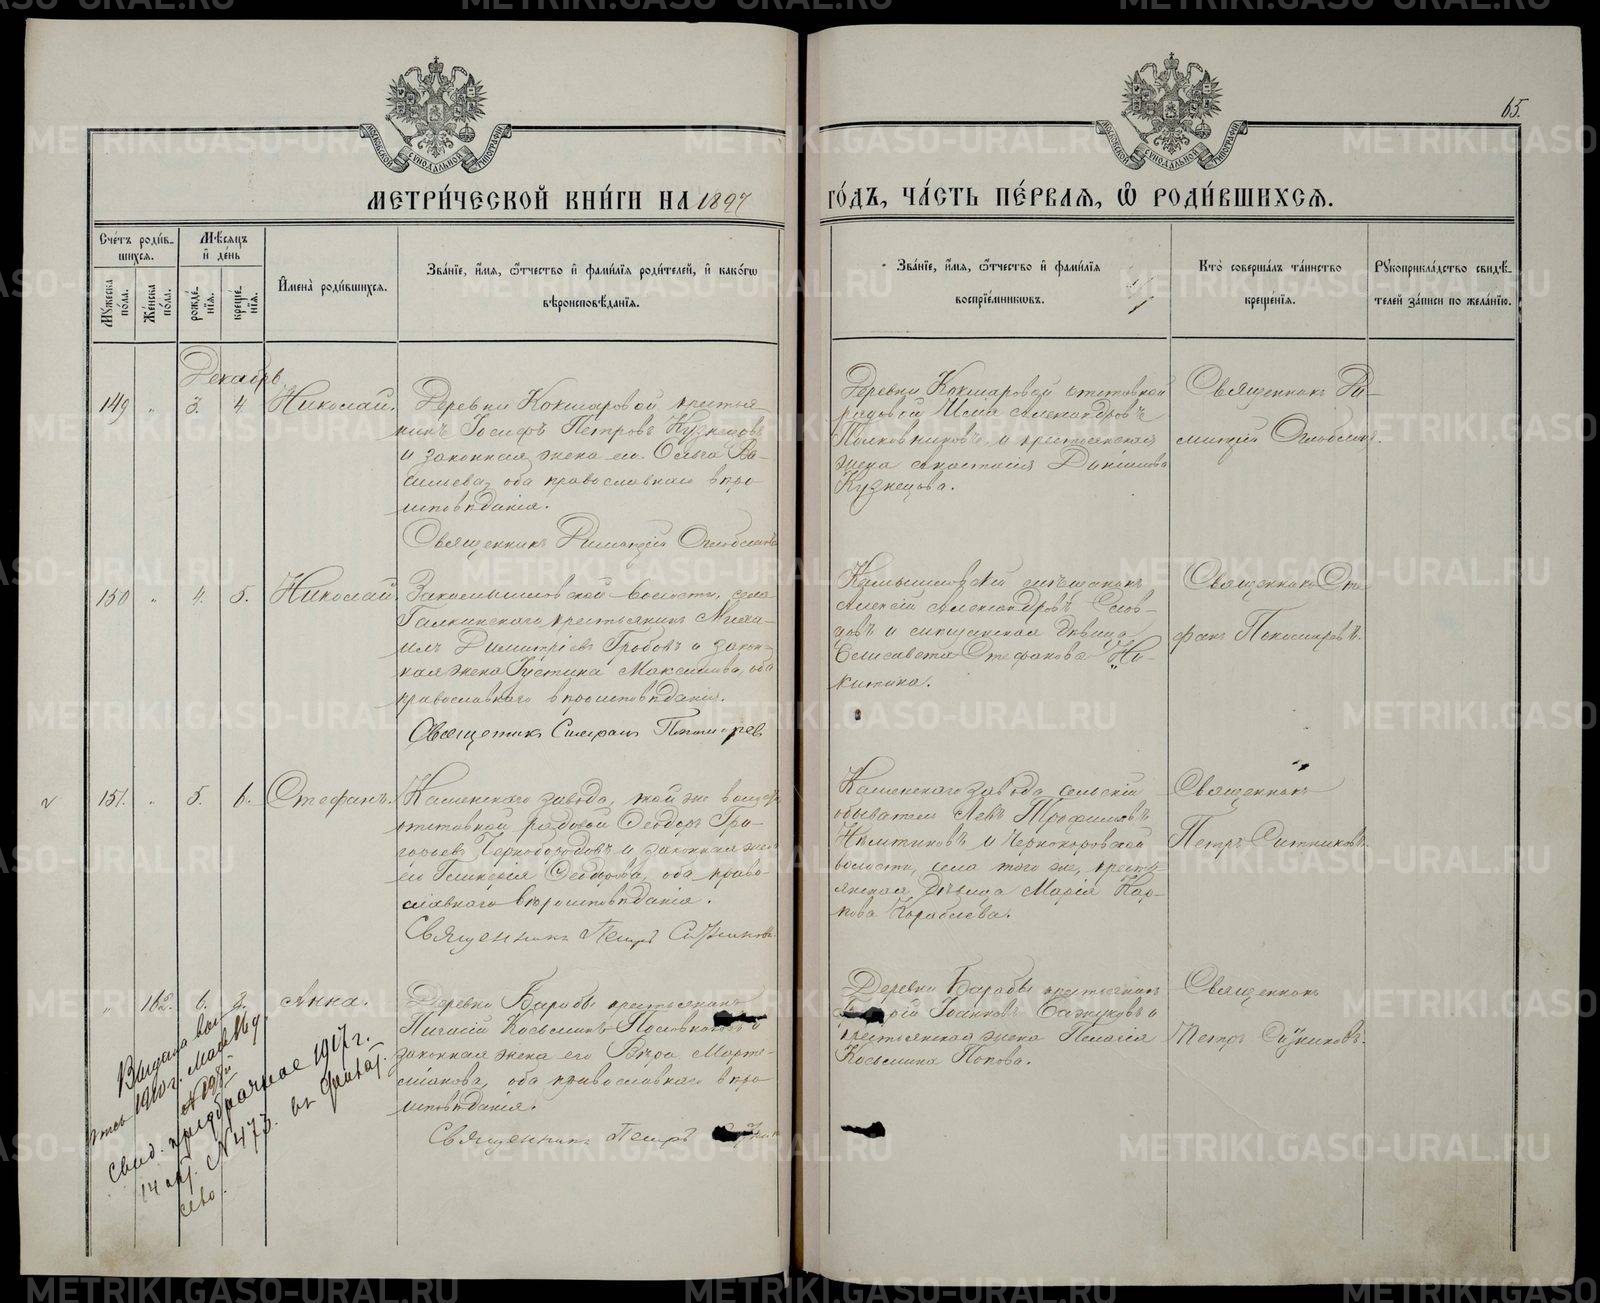 65.
МОСКОВСКОЙ СѴНОДАЛЬНОЙ ТИПОГРАФІИ
МОСКОВСКОЙ СѴНОДАЛЬНОЙ ТИПОГРАФІИ
МЕТРИ́ЧЕСКОЙ КНИ́ГИ НА 1897
ГО́ДЪ, ЧА́СТЬ ПЕ́РВАЯ, Ѽ РОДИ́ВШИХСЯ.
Сче́тъ роди́в-
шихся.
Мꙋжеска по́ла.
Же́нска по́ла.
Мѣ́сяцъ
и҆ де́нь
рожде́-
нїя.
креще́-
нїя.
И҆мена̀ роди́вшихся.
Зва́нїе, и҆́мя, ѻ҆́тчество и҆ фами́лїя роди́телей, и҆ како́гѡ
вѣроисповѣ́данїя.
Зва́нїе, и҆́мя, ѻ҆́тчество и҆ фами́лїя
воспрїе́мникѡвъ.
Кто̀ соверша́лъ та́инство
креще́нїя.
Рꙋкоприкла́дство свидѣ́-
телей за́писи по жела́нїю.
Декабрь
149 " 3. 4. Николай.
Деревни Кокшаровой крестья-
нинъ Іосифъ Петровъ Кузнецовъ
и законная жена его Ольга Ва-
сильева, оба православнаго вѣро-
исповѣданія.
Священникъ Димитрій
Деревни Кокшаровой отставной
рядовой Александровъ
Полковниковъ и крестьянская
жена Анастасія Даніилова
Кузнецова.
Священникъ Ди-
митрій
150 " 4. 5. Николай.
Закамышловской волости, села
Галкинскаго крестьянинъ Миха-
илъ Димитріевъ Гробовъ и закон-
ная жена Іустина Максимова, оба
православнаго вѣроисповѣданія.
Священникъ Стефанъ
Камышловскій мѣщанинъ
Алексій Александровъ Слов-
цовъ и мѣщанская дѣвица
Елисавета Стефанова Ни-
китина.
Священникъ Сте-
фанъ
151. " 5. 6. Стефанъ.
Каменскаго завода, той же волости
отставной рядовой Ѳеодоръ Гри-
горьевъ Чернобородовъ и законная жена
его Гликерія Ѳеодорова, оба право-
славнаго вѣроисповѣданія.
Священникъ Петръ Ситниковъ.
Каменскаго завода сельскій
обыватель Левъ Трофимовъ
и
волости, села того же, кресть-
янская дѣвица Марія Кар-
пова Кораблева.
Священникъ
Петръ Ситниковъ.
" 162. 6. 3. Анна.
Деревни Барабы крестьянинъ
Косьминъ и
законная жена его Вѣра Марте-
міанова, оба православнаго вѣро-
исповѣданія.
Священникъ Петръ
Деревни Барабы крестьянинъ
Іоанновъ и
крестьянская жена Пелагія
Косьмина Попова.
Священникъ
Петръ Ситниковъ.
Выдана вы-
пись 1910 г. мая
№
свид. предбрачное 1917 г.
14 окт. № 473.